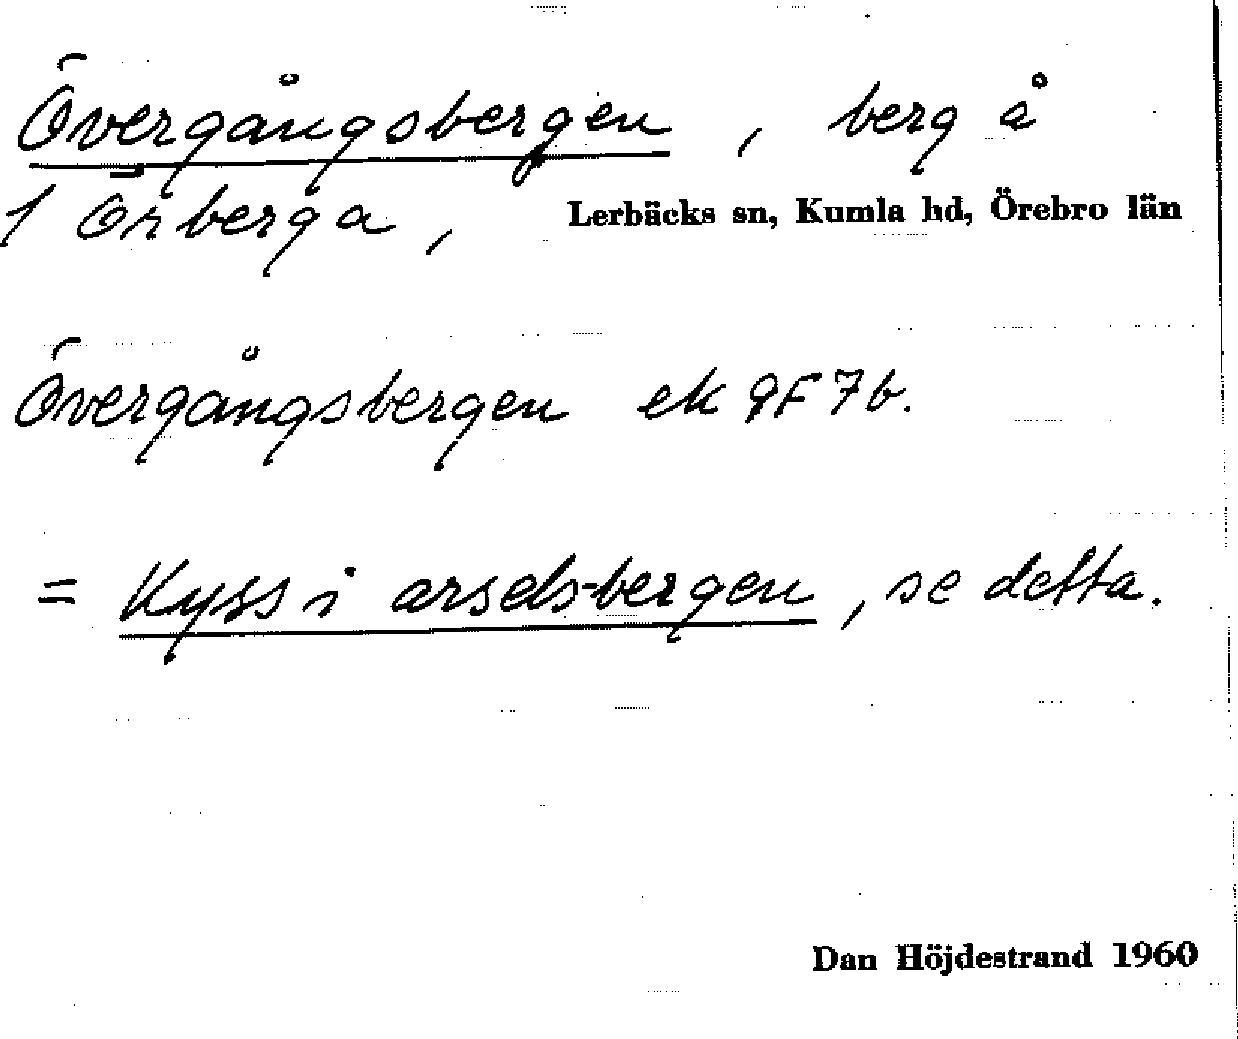 Övergångsbergen, berg å
1 Önberga, Lerbäcks sn, Kumla hd, Örebro län
Övergångsbergen ek 9F7b.
= Kyss i arsels-bergen, se detta.
Dan Höjdestrand 1960